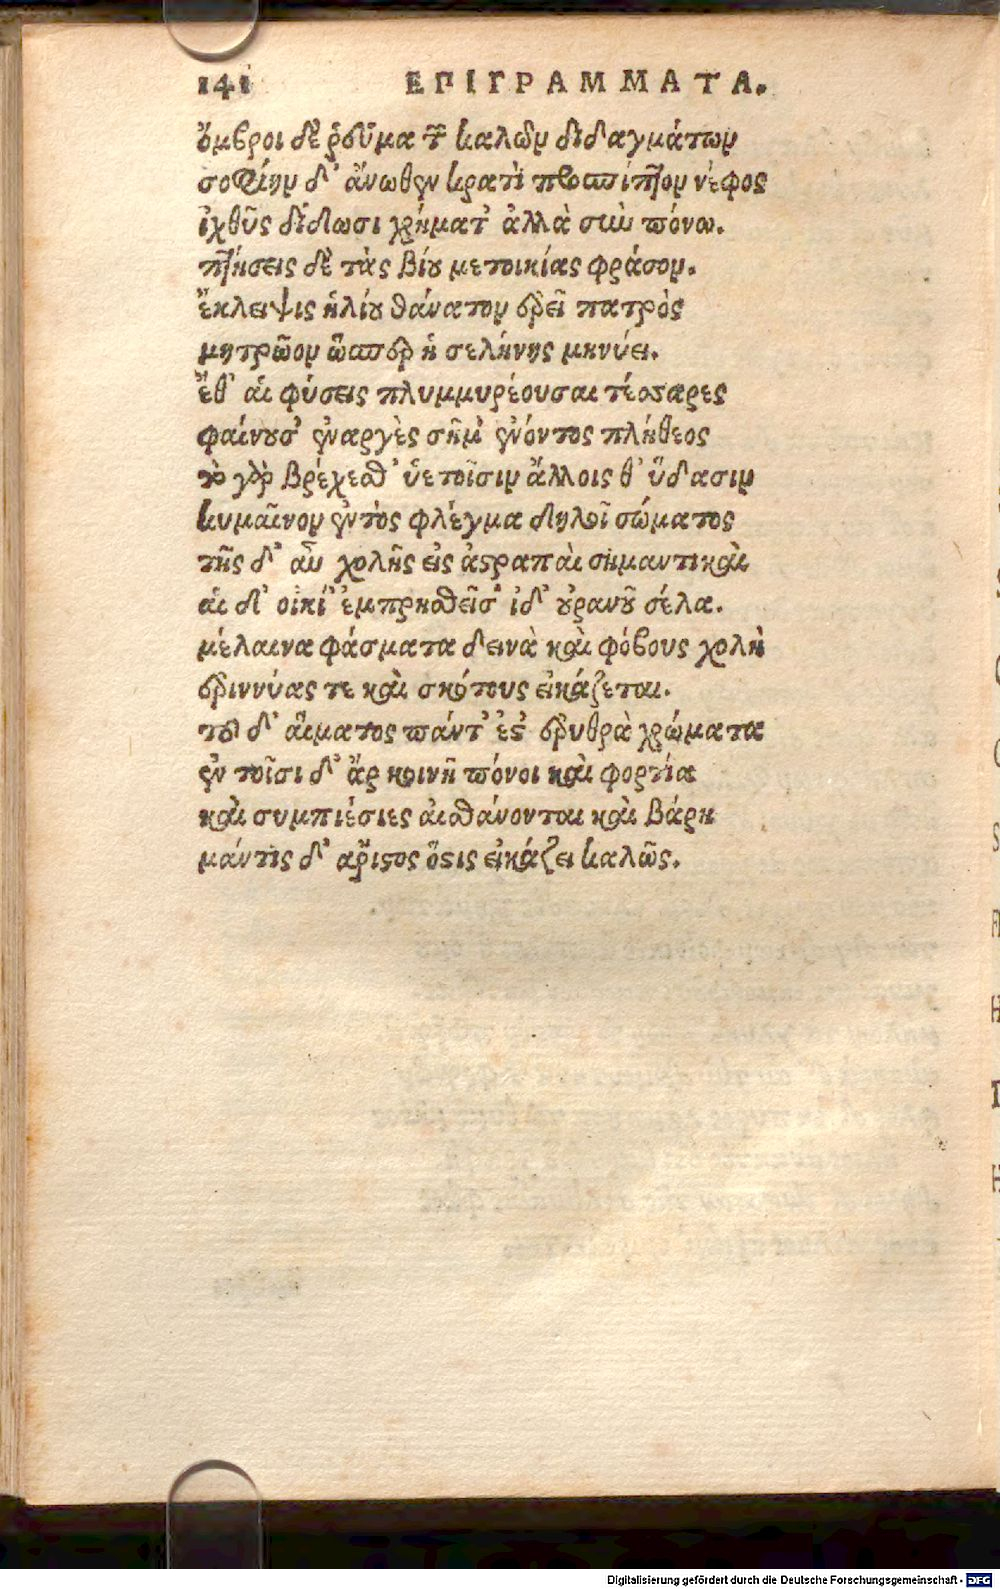 141 ΕΠΙΓΡΑΜΜΑΤΑ.
ὄμβροι δὲ ῥεῦμα τῶν καλῶν διδαγμάτων
σοφίην δ' ἄνωθεν κρατὶ προσπίπτον νέφος
ἰχθῦς δίδωσι χρήματ' ἀλλὰ σὺν πόνω.
πτήσεις δὲ τὰς βίου μετοικίας φράσον.
ἔκλειψις ἡλίου θάνατον ἐρεῖ πατρὸς
μητρῶον ὥσπερ ἡ σελήνης μηνύει.
ἔθ' αἱ φύσεις πλυμμυρέουσαι τέσσαρες
φαίνουσ' ἐναργὲς σῆμ' ἐνόντος πλήθεος
τὸ γὰρ βρέχεσθ' ὑετοῖσιν ἄλλοις θ' ὕδασιν
κυμαῖνον ἐντὸς φλέγμα δηλοῖ σώματος
τῆς δ' αὖ χολῆς εἰς ἀστραπαὶ σημαντικαὶ
αἱ δ' οἰκί' ἐμπρησθεῖσ' ἰδ' οὐρανοῦ σέλα.
μέλαινα φάσματα δεινὰ καὶ φόβους χολὴ
ἐριννύας τε καὶ σκότους εἰκάζεται.
τοῦ δ' αἵματος πάντ' ἐς ἐρυθρὰ χρώματα
ἐν τοῖσι δ' ἂρ κοινῆ πόνοι καὶ φορτία
καὶ συμπιέσιες αἰσθάνονται καὶ βάρη
μάντις δ' ἄριστος ὅστις εἰκάζει καλῶς.
Digitalisierung gefördert durch die Deutsche Forschungsgemeinschaft - DFG